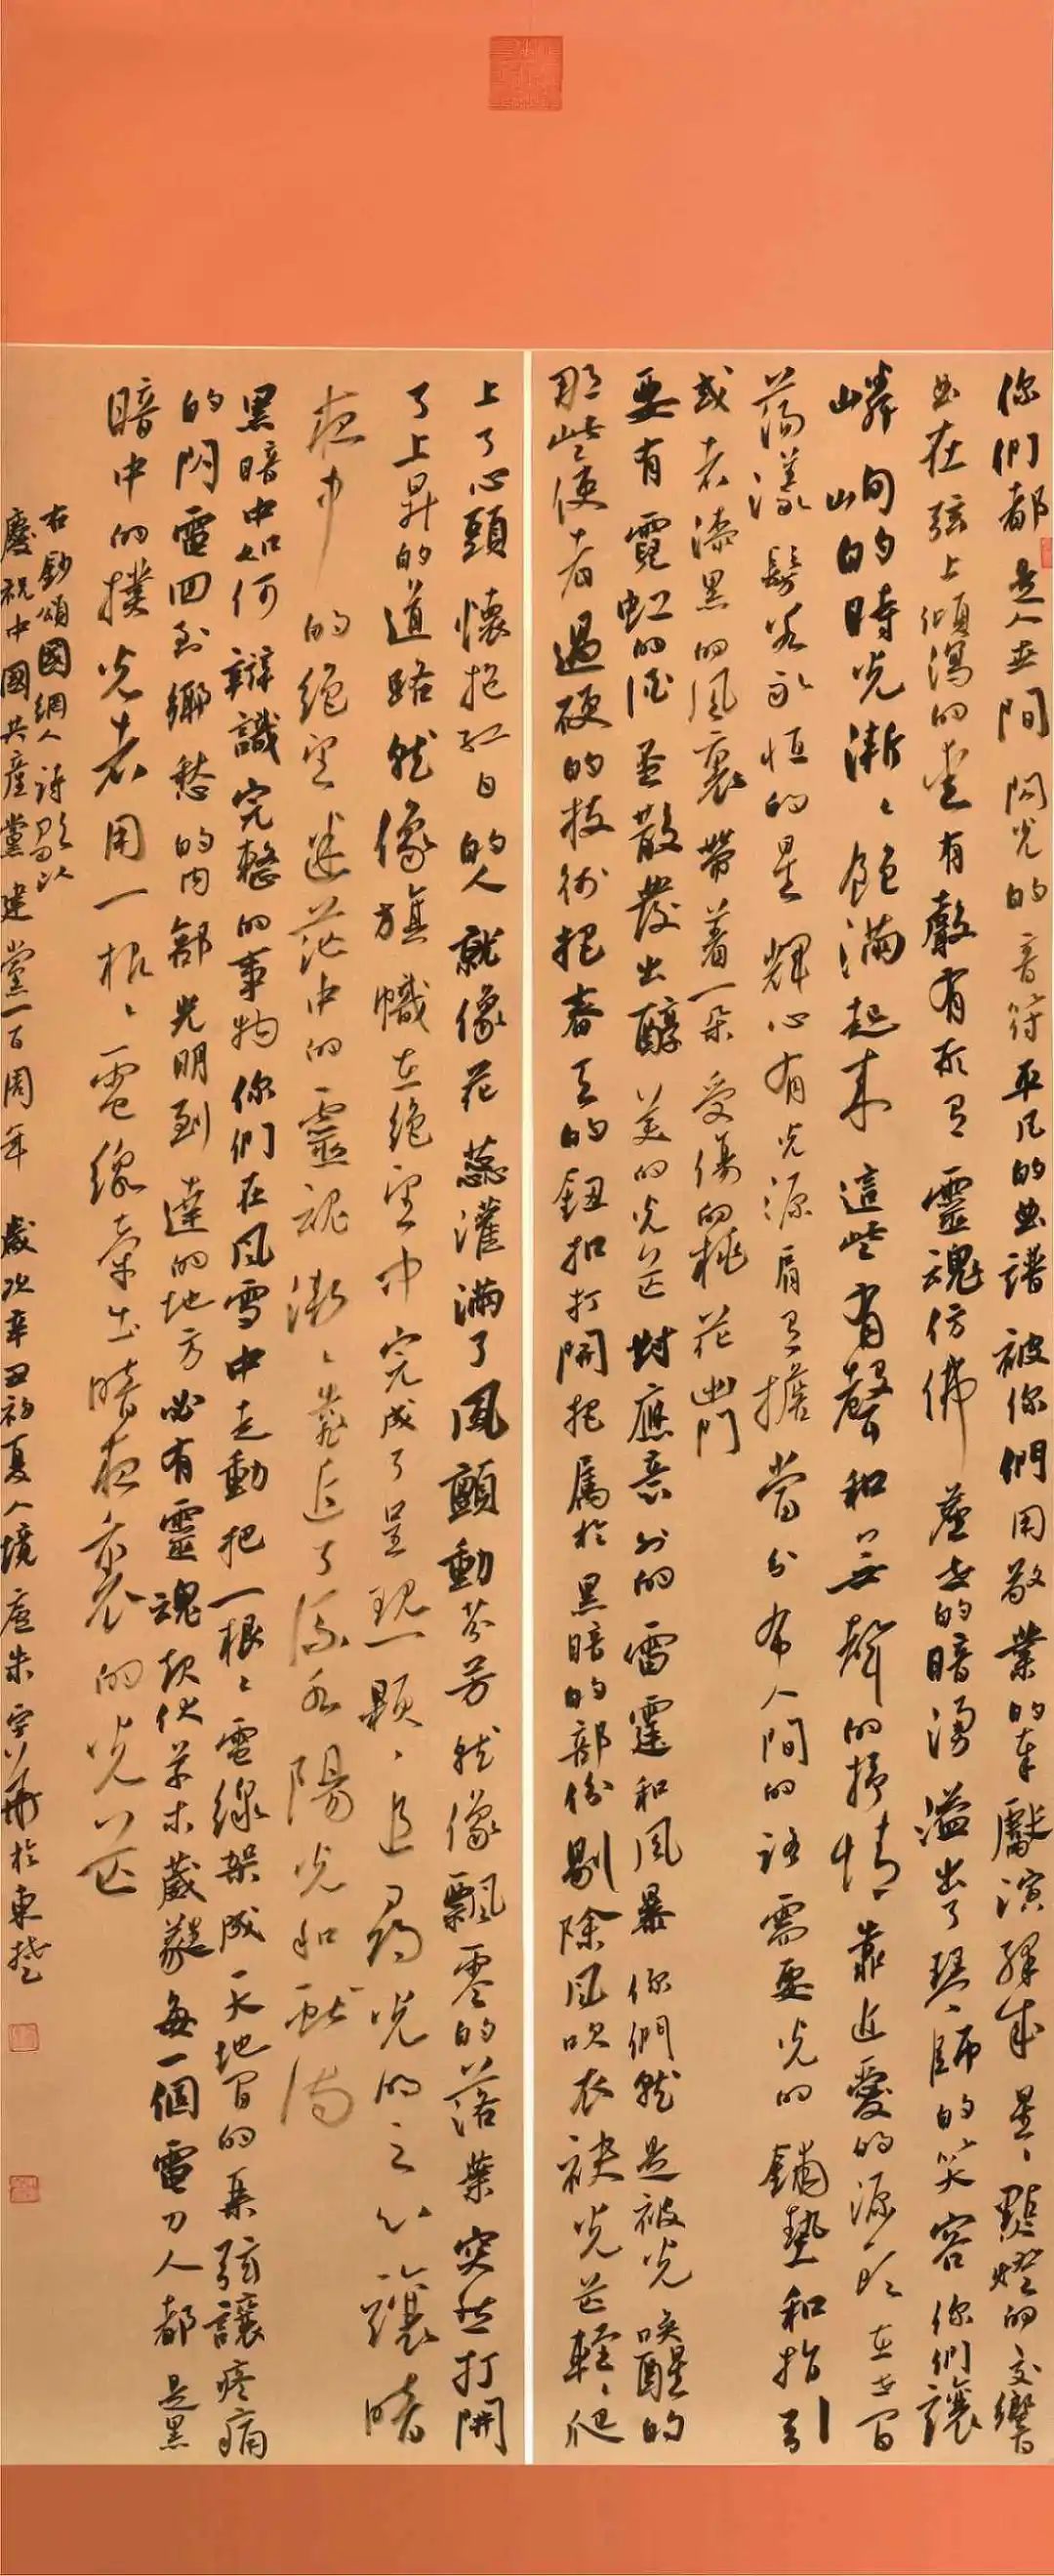 你們都是人世間閃光的音符平凡的曲譜被你們用敬業的奉獻演繹成星星點燈的交響
曲在弦上傾瀉的愛有聲有形有靈魂仿佛塵世的暗湧溢出了琴師的笑容你們讓
嶙峋的時光漸漸飽滿起來這些有聲和無聲的抒情靠近愛的源頭在世間
蕩漾鬢若永恒的星輝心有光源肩有擔當分布人間的語需要光的鋪墊和指引
或者漆黑的風裏帶着一朵受傷的桃花幽門
要有霓虹的酒盃散發出醇美的光芒對應意外的雷霆和風暴你們就是被光喚醒的
那些使者過硬的技術把春天的鈕扣打開把屬於黑暗的部份剔除風吹衣袂光芒輕輕爬
上了心頭懷抱紅日的人就像花蕊灌滿了風顫動芬芳就像飄零的落葉突然打開
了上昇的道路就像旗幟在絶望中完成了呈現一顆顆追尋光明之心讓暗
夜中的絶望迷茫中的靈魂漸漸靠近了流水陽光和
黑暗中如何辯識完整的事物你們在風雪中走動把一根根電線架成天地間的琴弦讓疼痛
的閃電回到鄉愁的内部光明到達的地方必有靈魂起伏草木葳蕤每一個電力人都是黑
暗中的撲光者用一根根電線牽出暗夜裏的光芒
右鈔頌國網人詩歌以
慶祝中國共産黨建黨一百周年 歲次辛丑初夏人境廬朱 於東楚